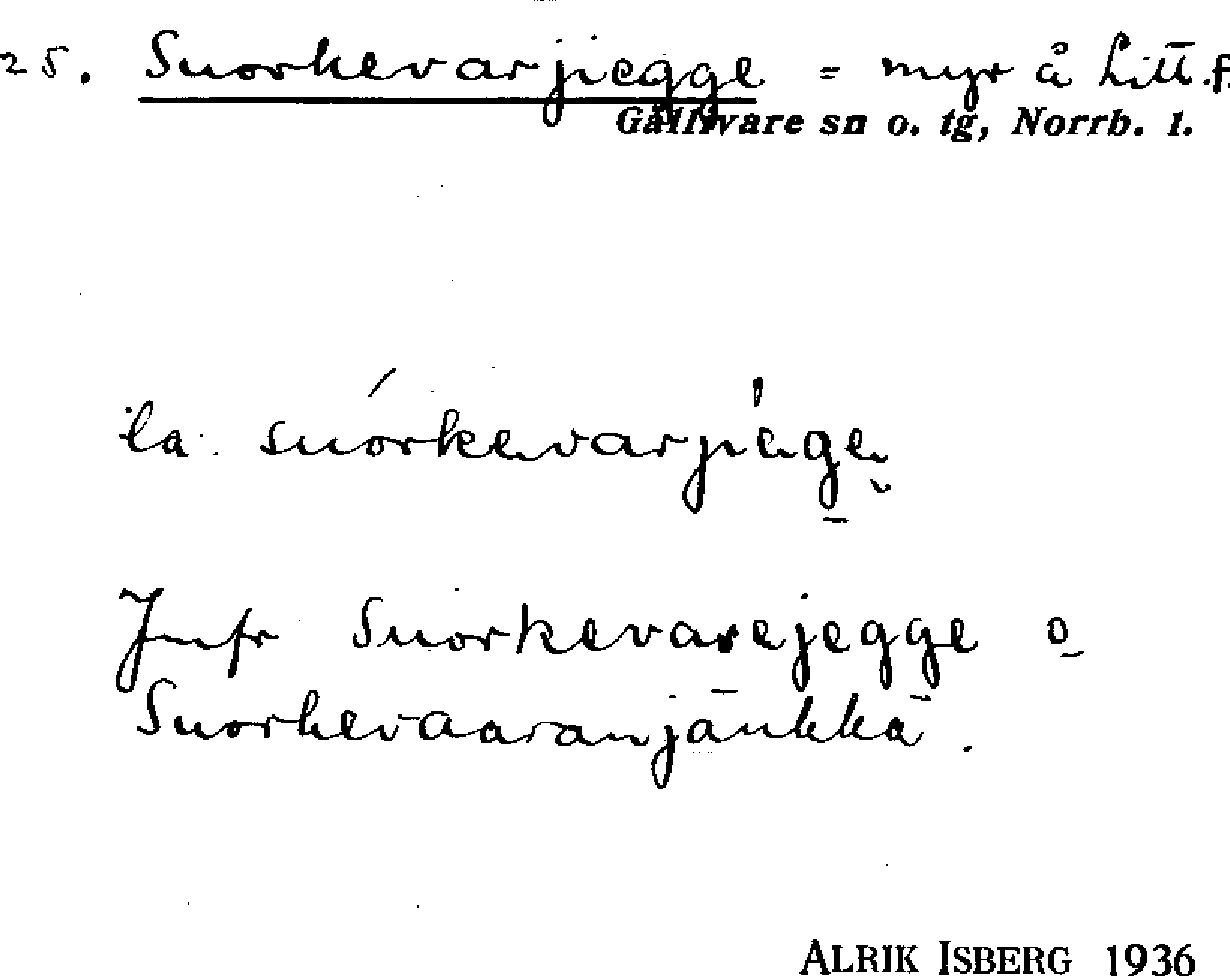 25. Snorkevarjiegge = myr å Litt.f.
Gällivare sn o. tg, Norrb. l.
la. snórkevarjiegge
Jmfr Snorkevarejegge o
Snorkevaaranjänkkä.
ALRIK ISBERG 1936